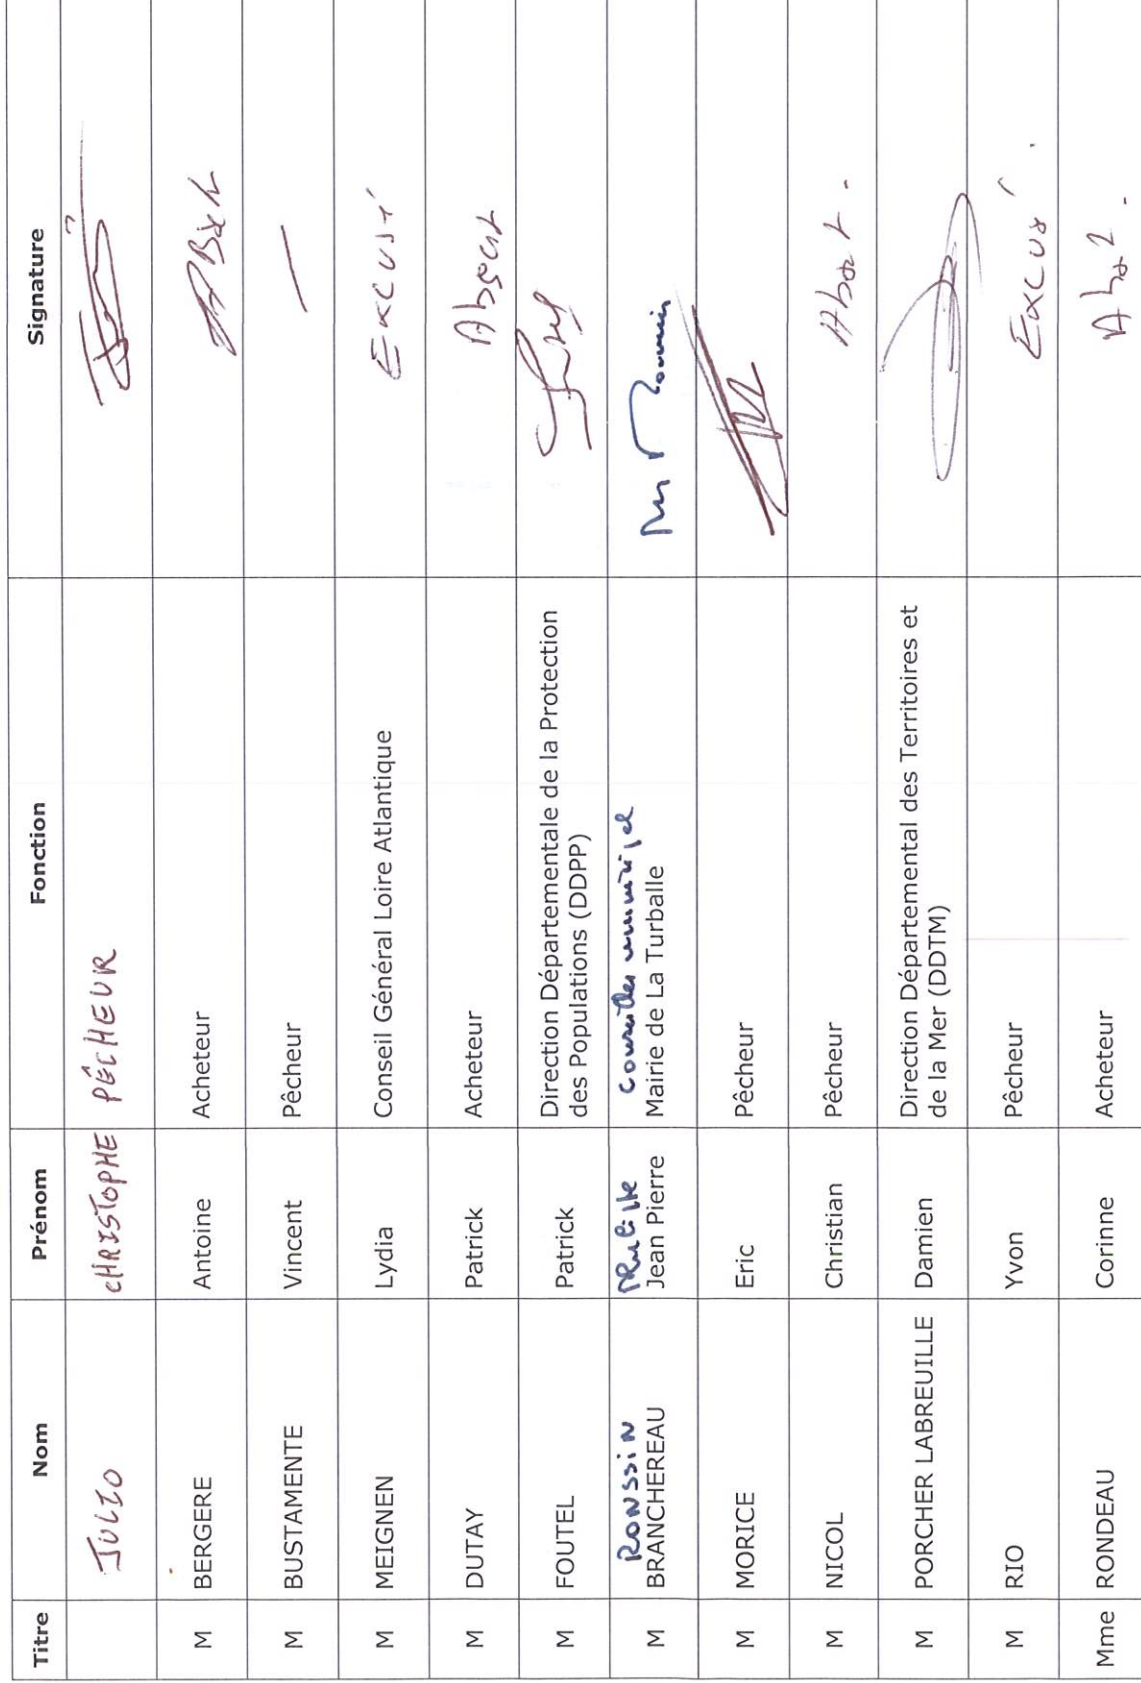 Titre Nom Prénom Fonction Signature
JULIO CHRISTOPHE PÊCHEUR
M BERGERE Antoine Acheteur
M BUSTAMENTE Vincent Pêcheur —
M MEIGNEN Lydia Conseil Général Loire Atlantique Excusé
M DUTAY Patrick Acheteur Absent
M FOUTEL Patrick Direction Départementale de la Protection
des Populations (DDPP)
RONSSIN conseiller municipal
M BRANCHEREAU Jean Pierre Mairie de La Turballe
M MORICE Eric Pêcheur
M NICOL Christian Pêcheur Absent.
M PORCHER LABREUILLE Damien Direction Départemental des Territoires et
de la Mer (DDTM)
M RIO Yvon Pêcheur Excusé.
Mme RONDEAU Corinne Acheteur Absent.